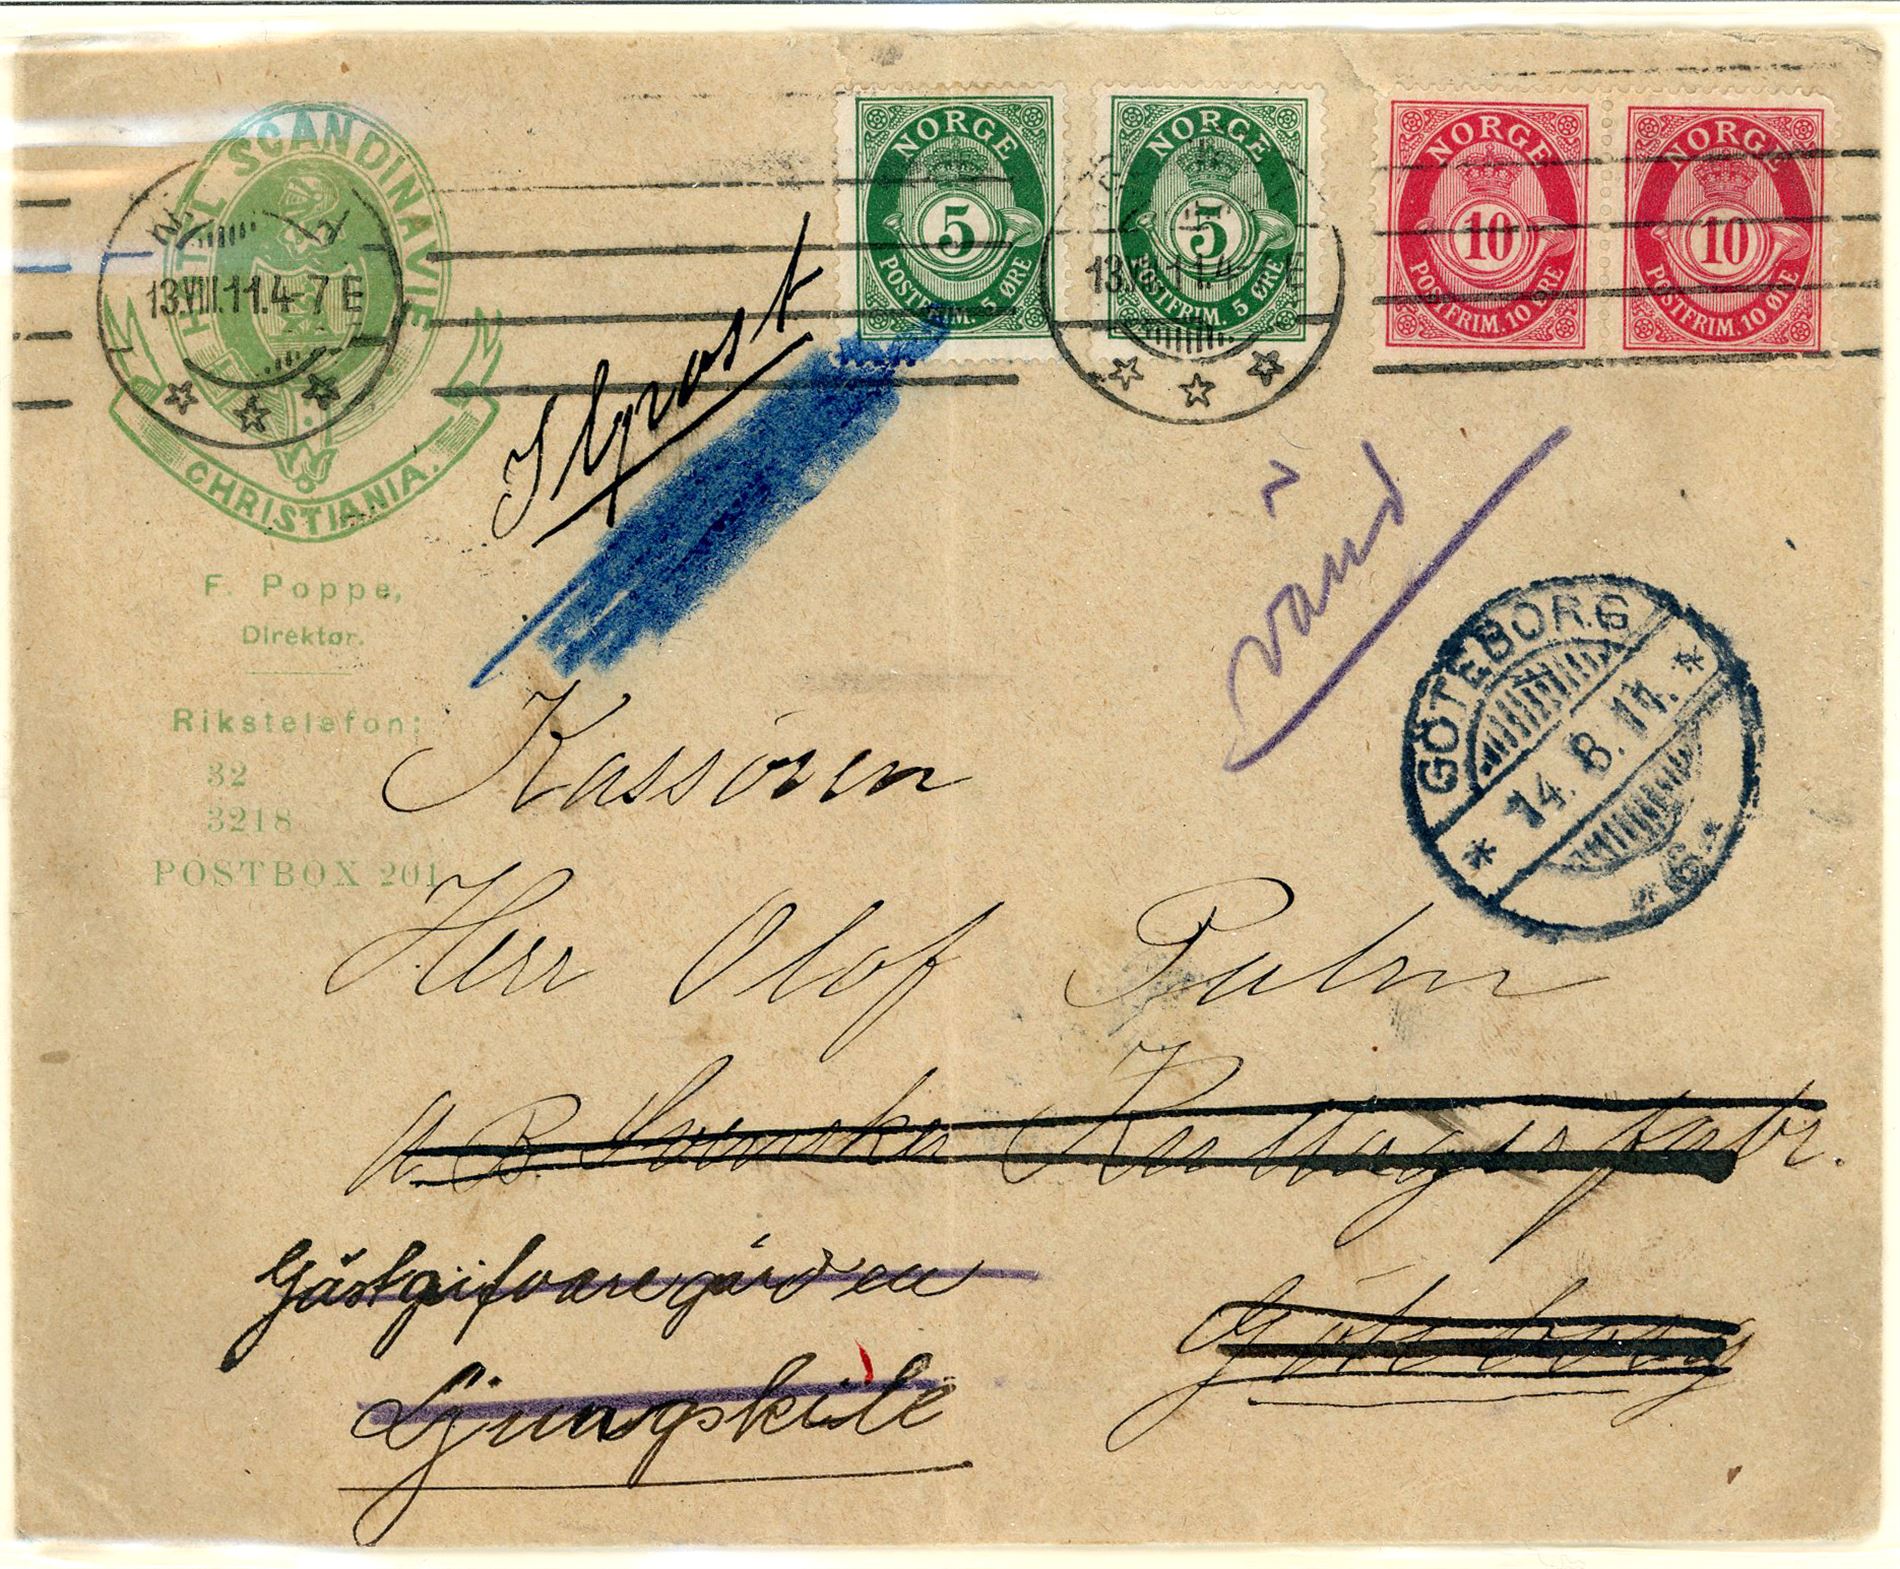 HOTEL SCANDINAVIE
CHRISTIANIA.
F. Poppe,
Direktør.
Rikstelefon:
32
3218
POSTBOX 201
13.VIII.11.4-7 E
NORGE
5
POSTFRIM. 5 ØRE
NORGE
5
POSTFRIM. 5 ØRE
13.VIII.11.4-7 E
NORGE
10
POSTFRIM. 10 ØRE
NORGE
10
POSTFRIM. 10 ØRE
Ilpost
vänd
GÖTEBORG
14. 8. 11.
*6*
Kassören
Herr Olof Palm
A. B. Svenska Kullagerfabr.
Göteborg
Gästgifvaregården
Ljungskile